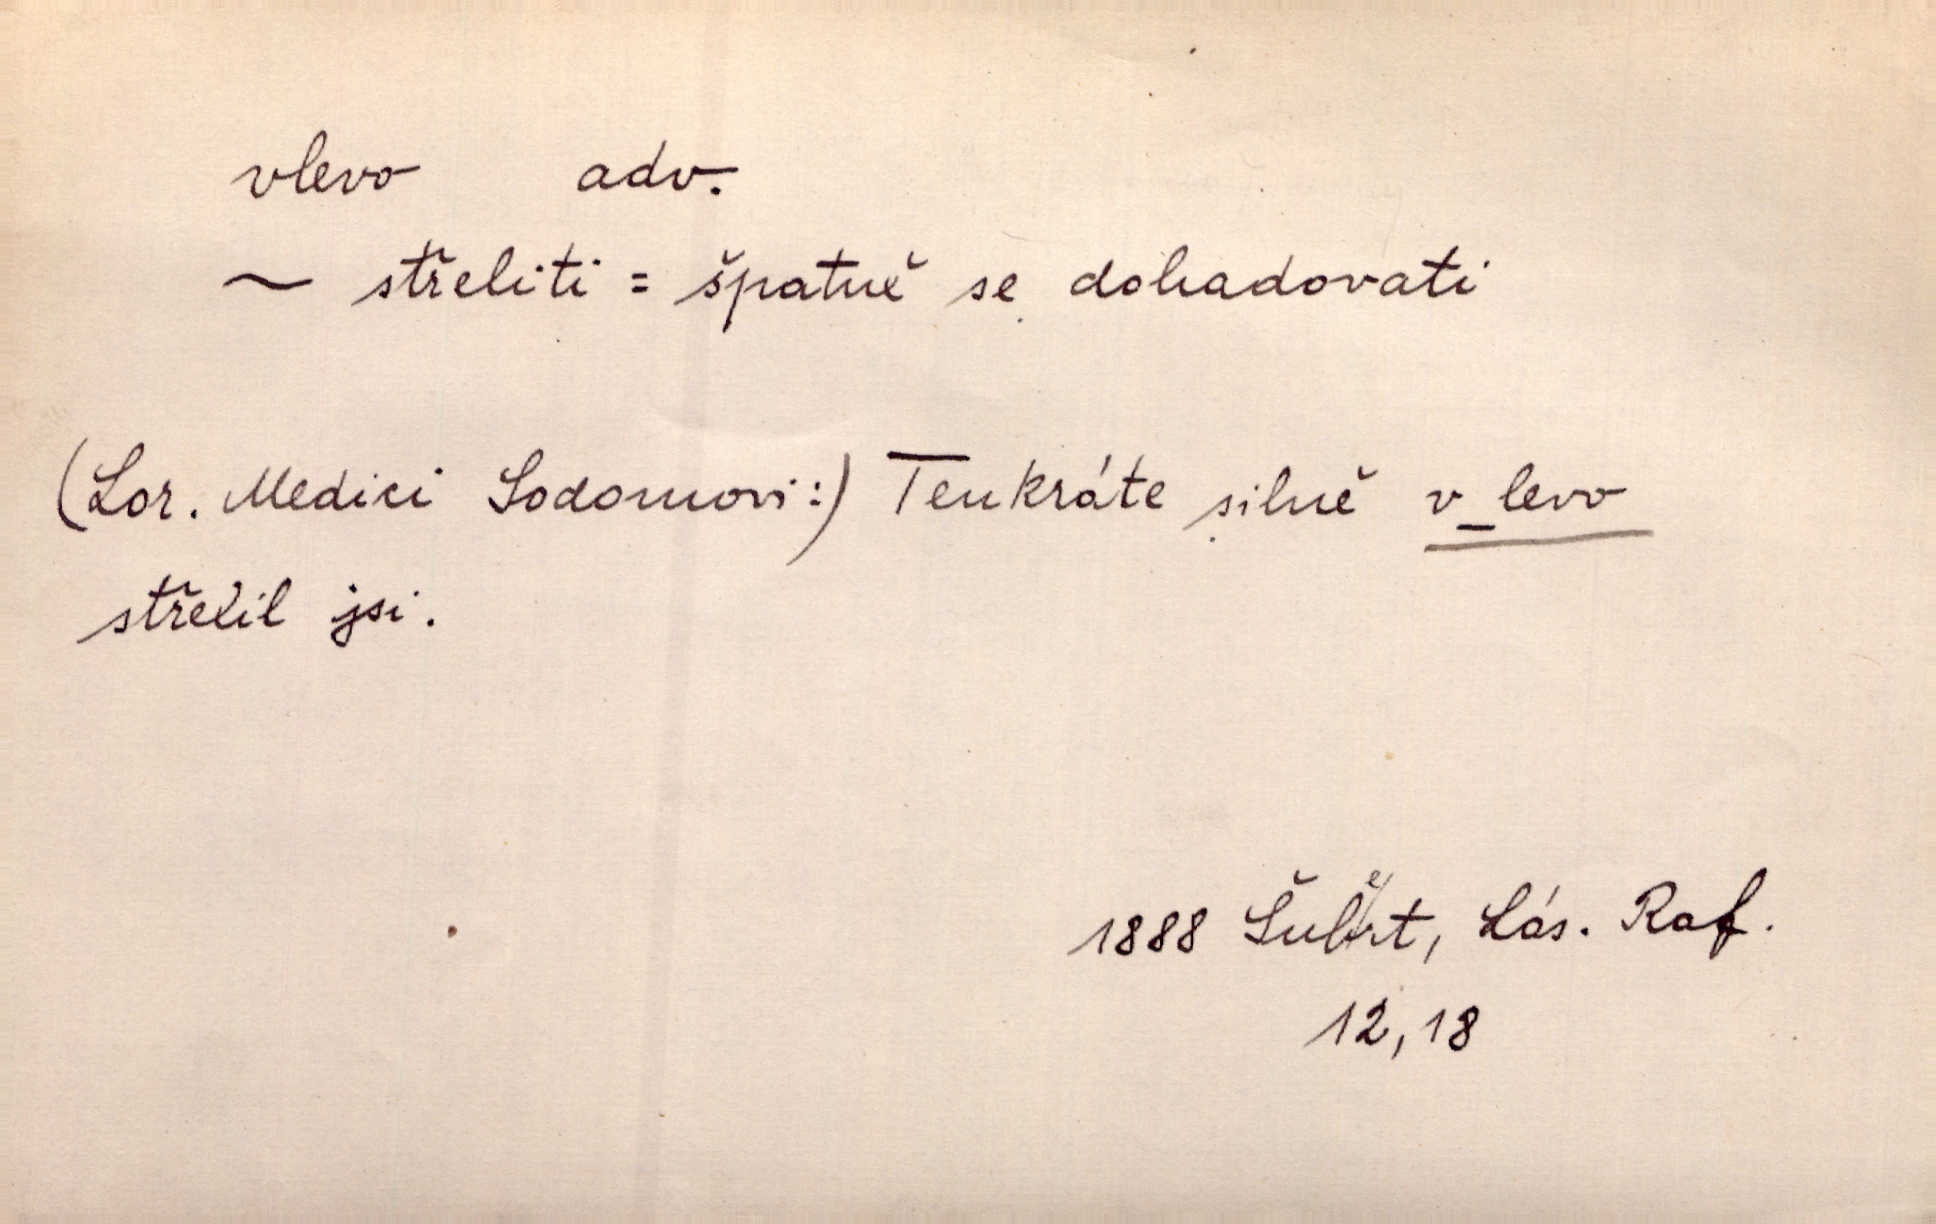 vlevo adv.
~ střeliti = špatně se dohadovati
(Lor. Medici Sodomovi:) Tenkráte silně v_levo
střelil jsi.
1888 Šubert, Lás. Raf.
12,18